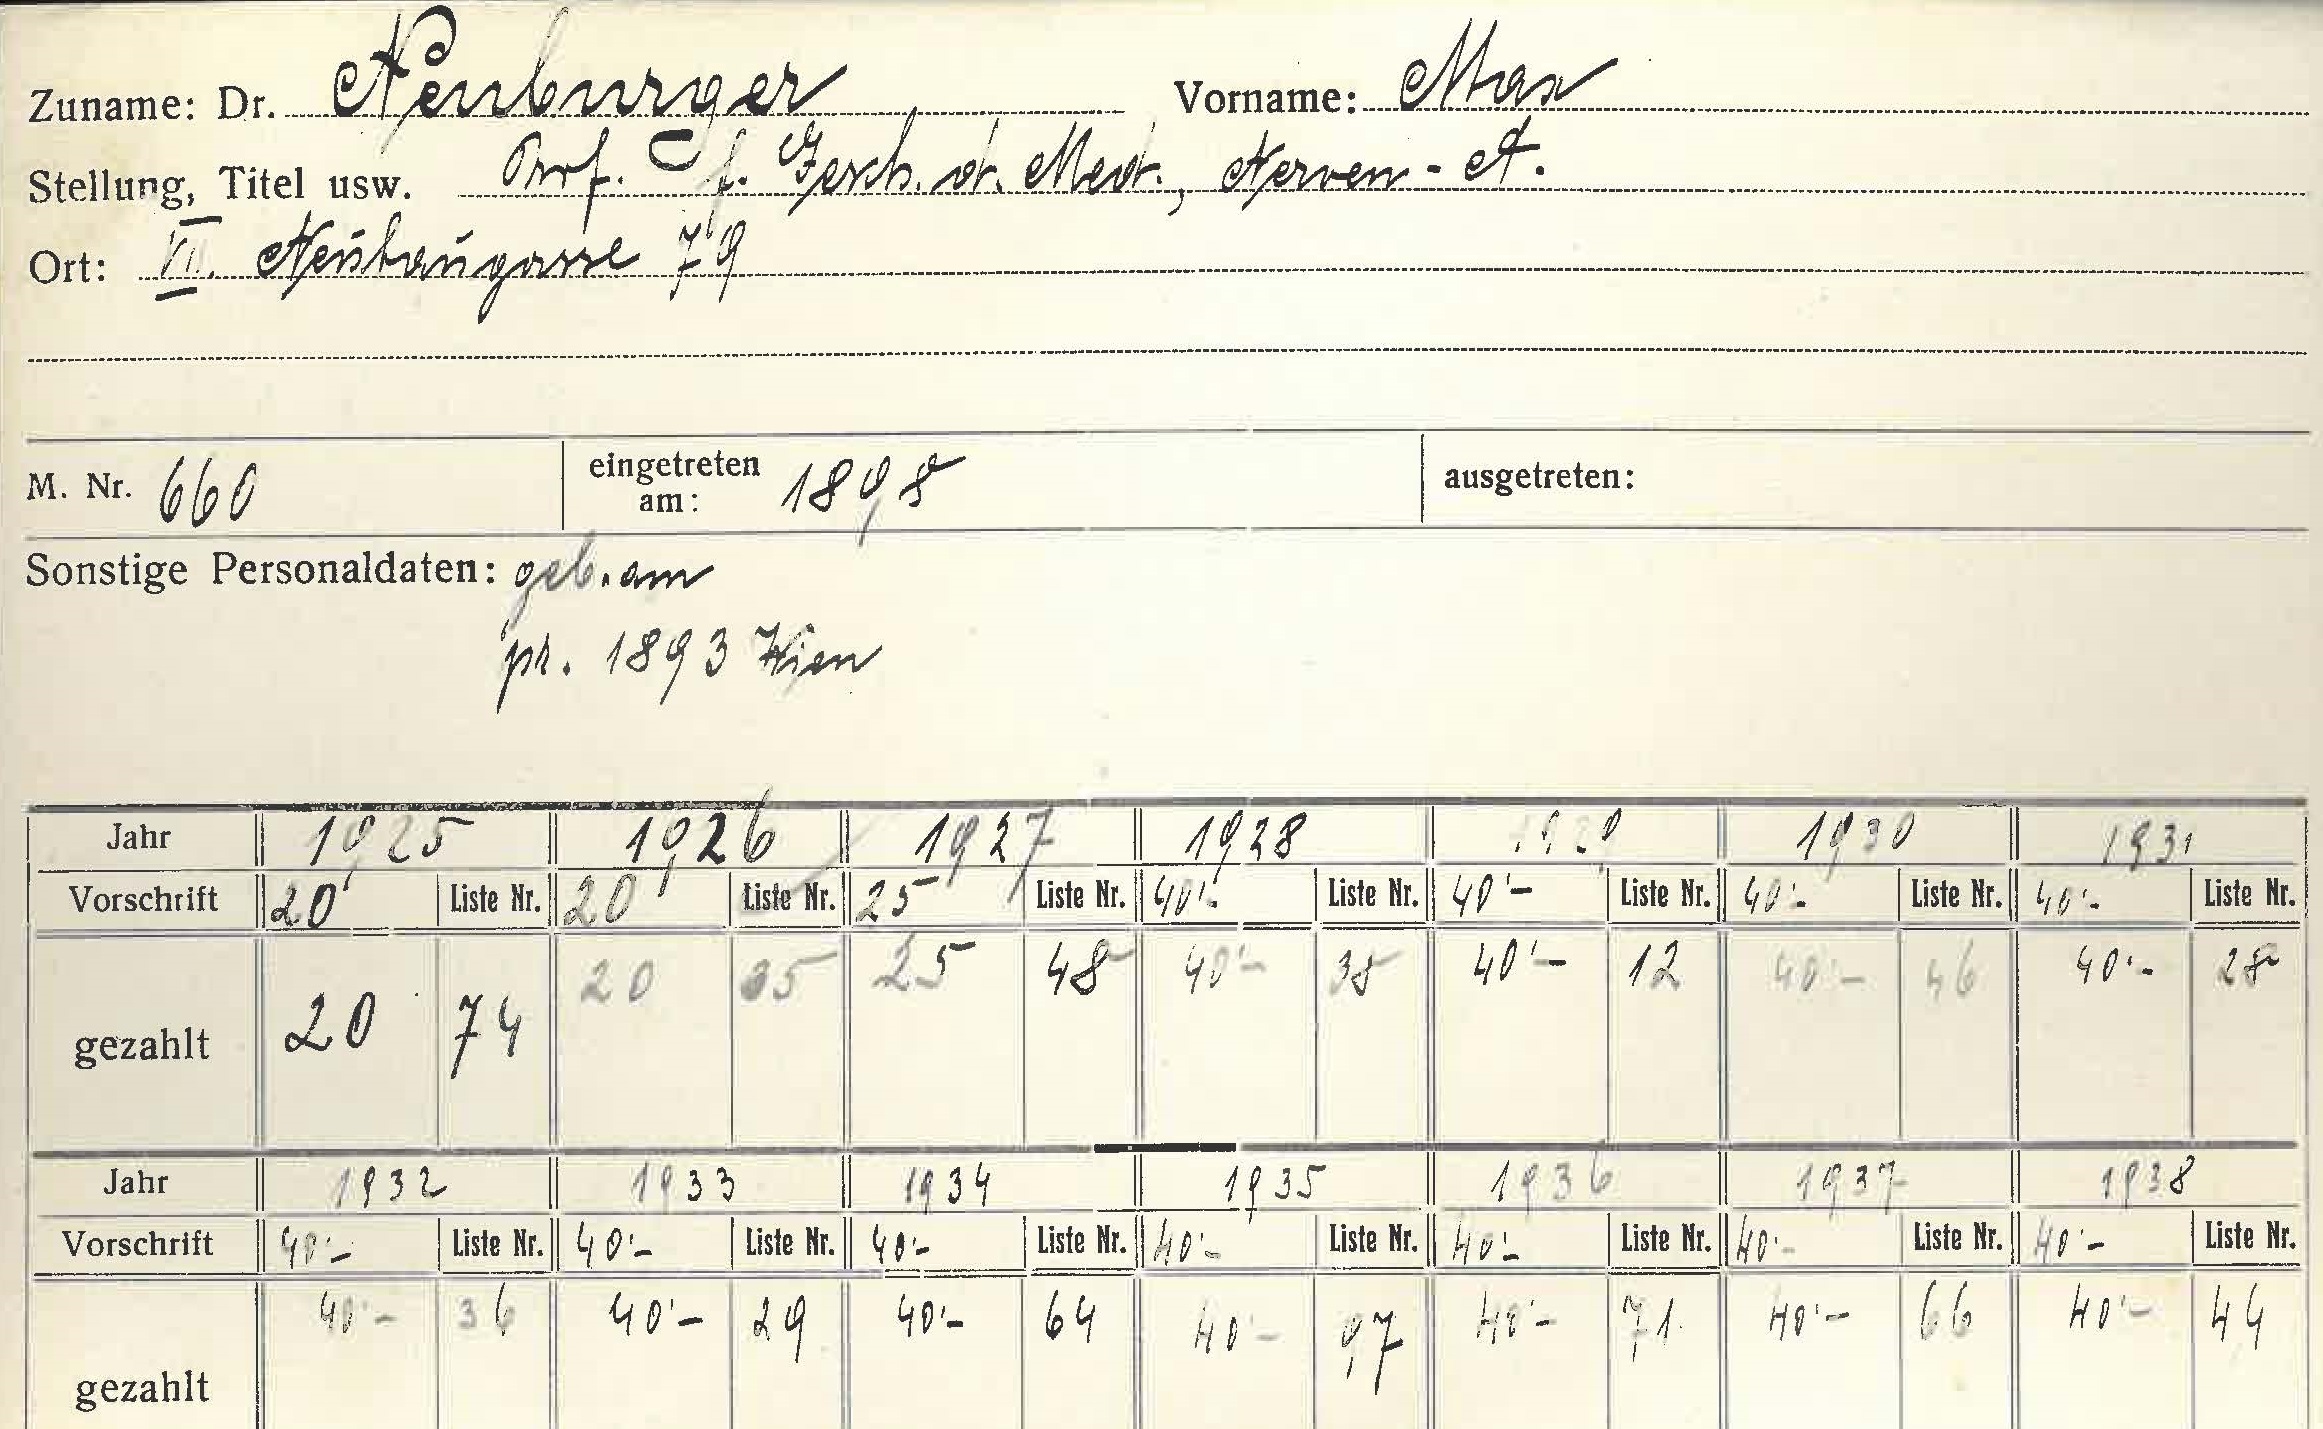 Zuname: Dr. Neuburger Vorname: Max
Stellung, Titel usw. Prof. f. Gesch. d. Med., Nerven-A.
Ort: VII. Neubaugasse 79
M. Nr. 660 eingetreten am: 1898 ausgetreten:
Sonstige Personaldaten: geb. am
pr. 1893 Wien
Jahr 1925 1926 1927 1928 1929 1930 1931
Vorschrift 20 Liste Nr. 20 Liste Nr. 25 Liste Nr. 40'- Liste Nr. 40'- Liste Nr. 40'- Liste Nr. 40'- Liste Nr.
gezahlt 20 74 20 35 25 48 40'- 38 40'- 12 40'- 46 40'- 28
Jahr 1932 1933 1934 1935 1936 1937 1938
Vorschrift 40'- Liste Nr. 40'- Liste Nr. 40'- Liste Nr. 40'- Liste Nr. 40'- Liste Nr. 40'- Liste Nr. 40'- Liste Nr.
gezahlt 40'- 36 40'- 29 40'- 64 40'- 97 40'- 71 40'- 66 40'- 44